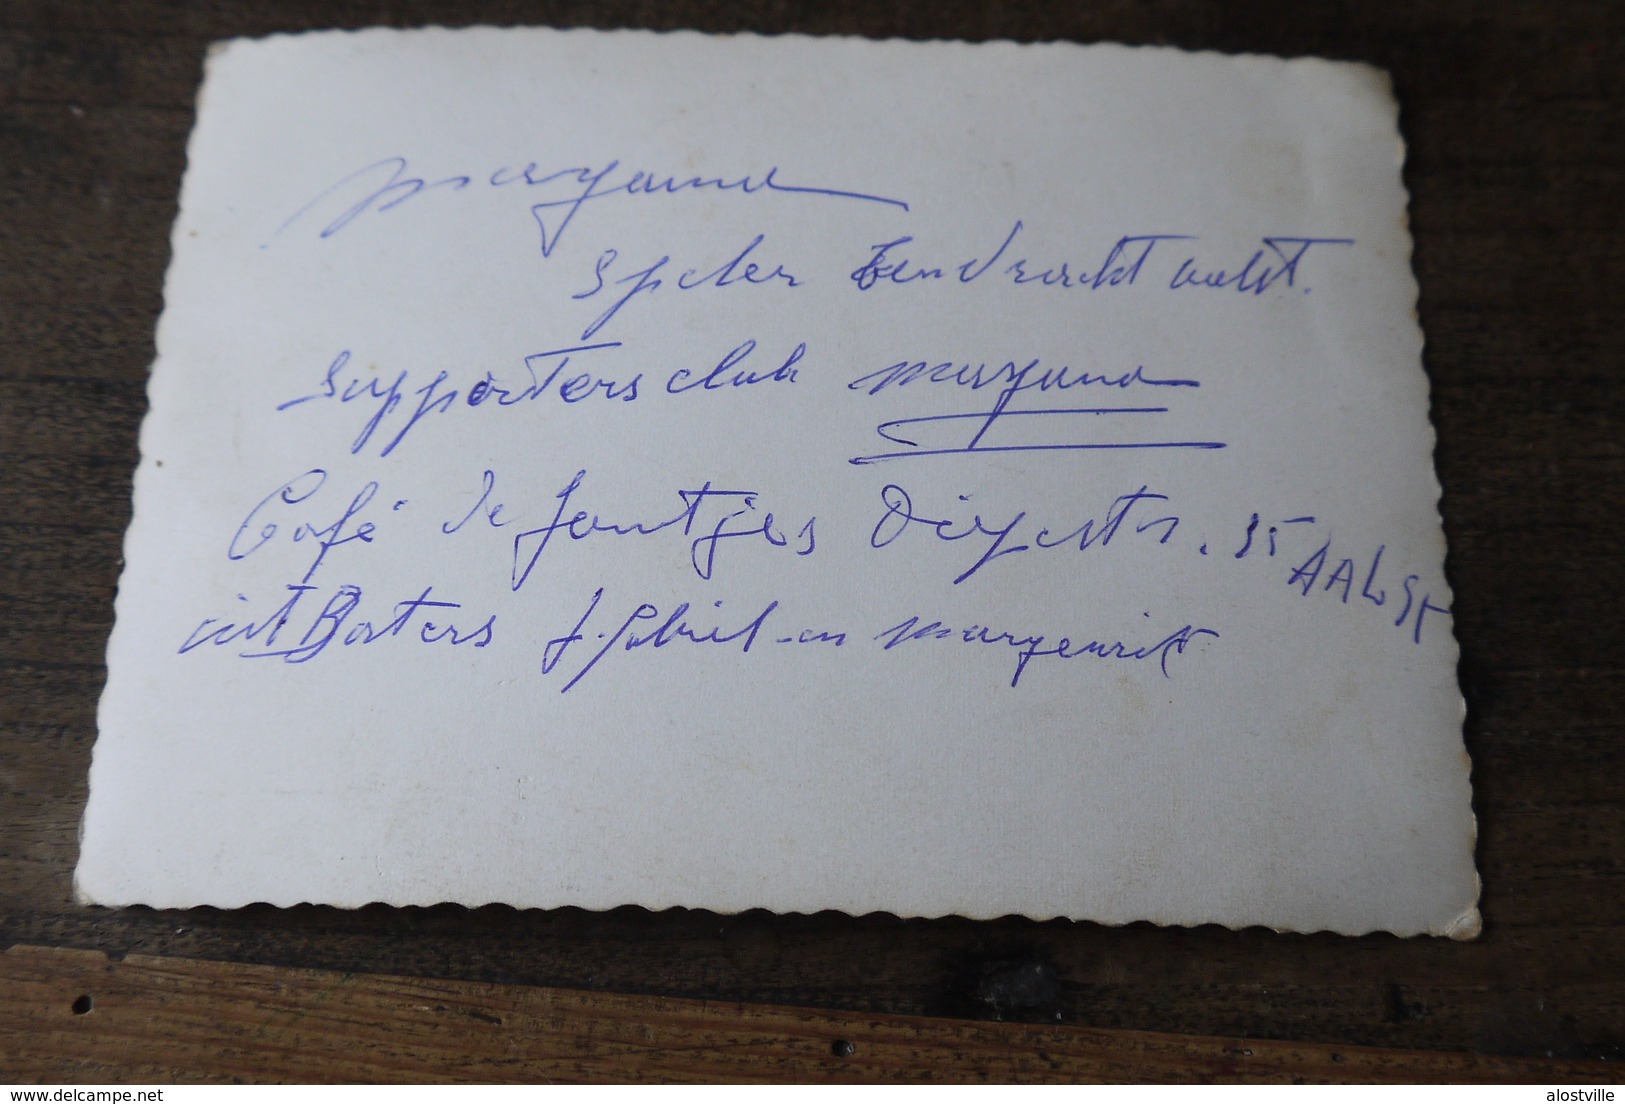 Mayama
Speler Eendracht Aalst.
Supporters club Mayama
Café de fontjes Diepestr. 35 AALST
uitBaters J. Gabriel en Margeurit
www.delcampe.net
alostville